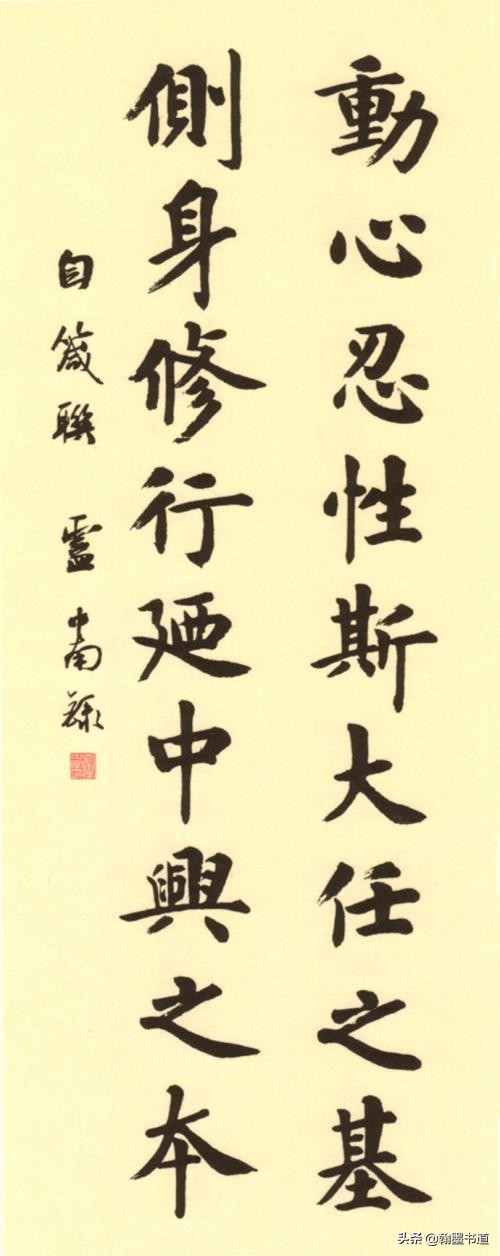 動心忍性斯大任之基
側身修行廼中興之本
自箴聯 盧中南録
头条 @翰墨书道